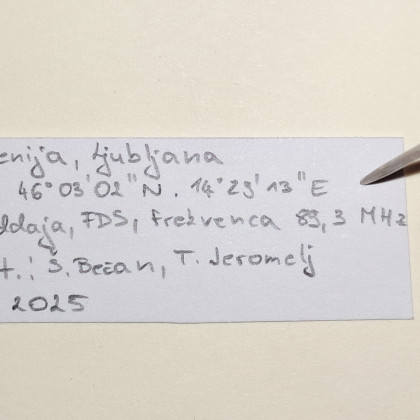 enija, Ljubljana
46°03'02"N. 14°29'13"E
ddaja, FDS, frekvenca 89,3 MHz
t.: Š. Bečan, T. Jeromelj
2025